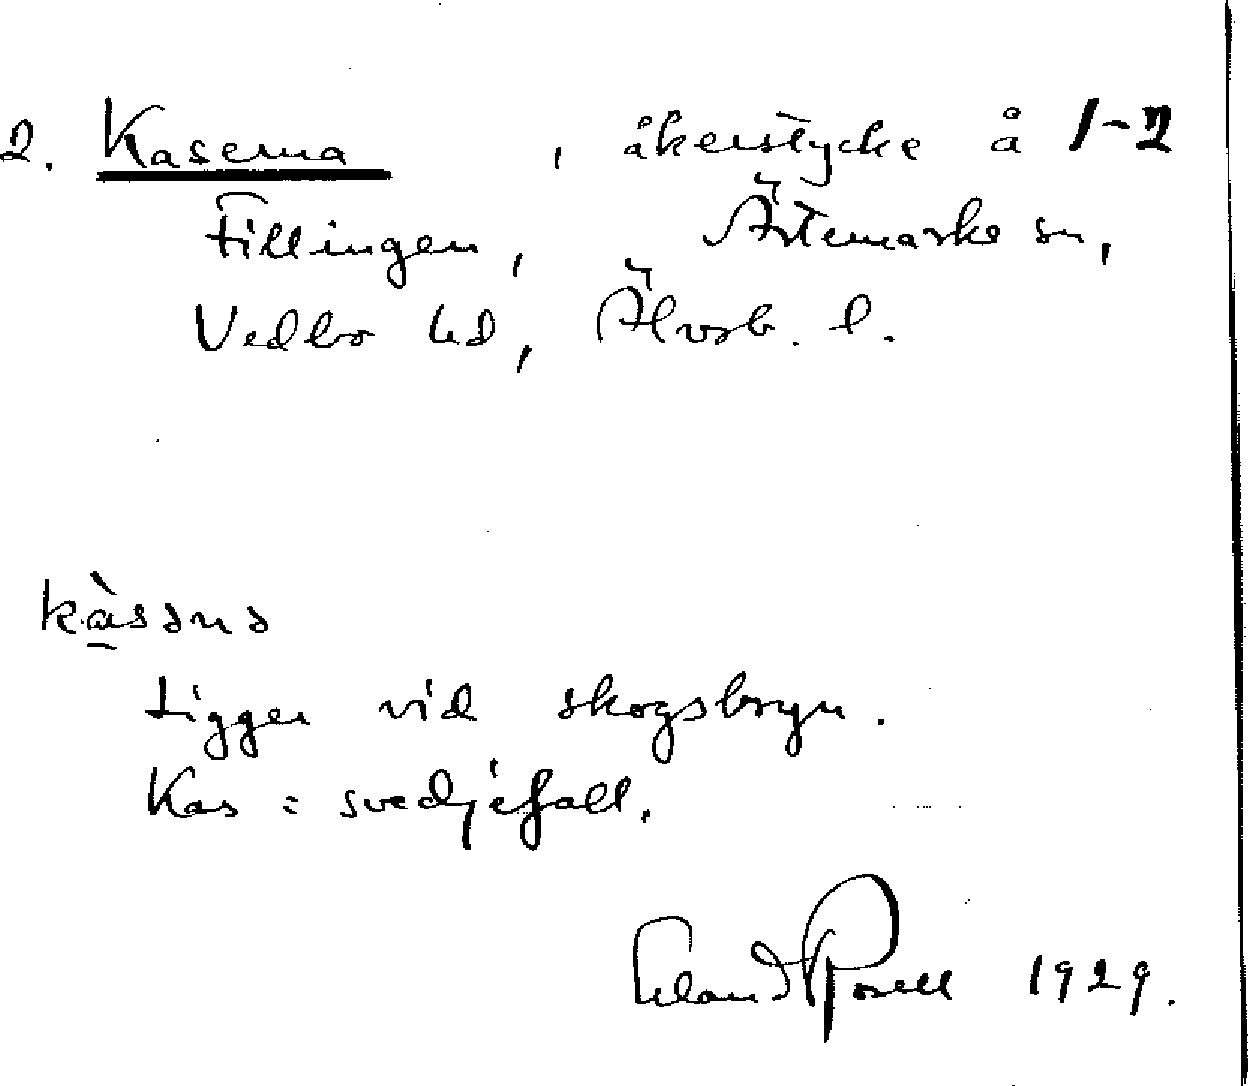 2. Kaserna, åkerstycke å 1-2
Fillingen, Ärtemarks sn,
Vedbo hd, Älvsb. l.
kàssnɘ
Ligger vid skogsbryn.
Kas = svedjefall.
Erland Rosell 1929.